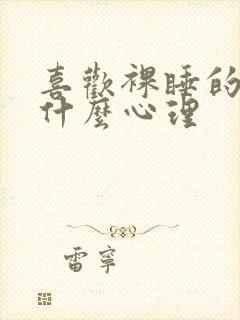 喜歡裸睡的
什麼心理
雷寧